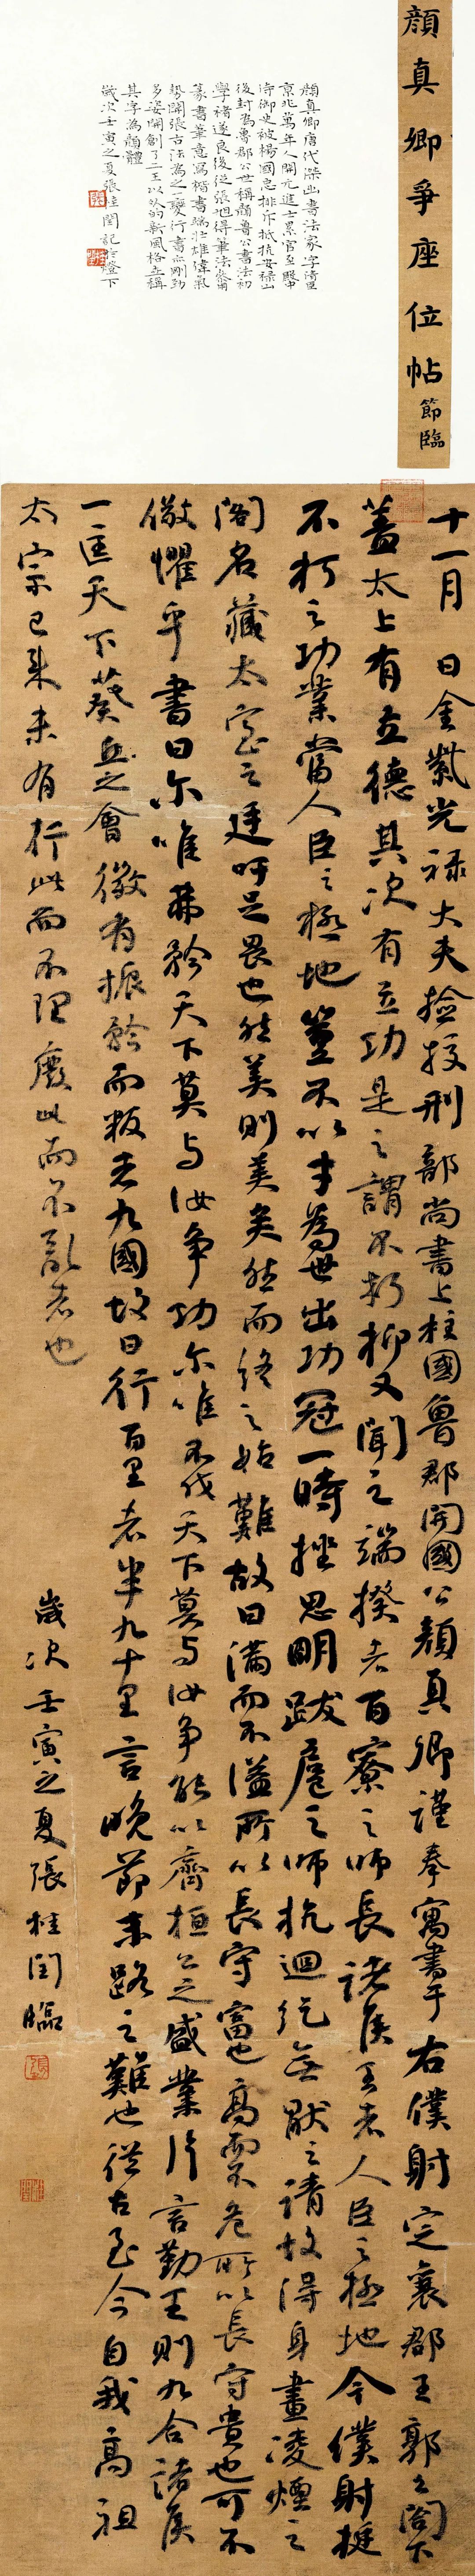 顔真卿爭座位帖節臨
顔真卿唐代傑出書法家字清臣
京兆萬年人開元進士累官至殿中
侍御史被楊國忠排斥抵抗安禄山
後封為魯郡公世稱顔魯公書法初
學褚遂良後從張旭得筆法參用
篆書筆意寫楷書端莊雄偉氣
勢開張古法為之一變行書亦剛勁
多姿開創了二王以外的新風格並稱
其字為顔體
歲次壬寅之夏張桂閏記於燈下
十一月 日金紫光禄大夫撿挍刑部尚書上柱國魯郡開國公顔真卿謹奉寓書于右僕射定襄郡王郭公閣下
蓋太上有立德其次有立功是之謂不朽抑又聞之端揆者百寮之師長諸侯王者人臣之極地今僕射挺
不朽之功業當人臣之極地豈不以才為世出功冠一時挫思明跋扈之師抗迴紇無猒之請故得身畫凌煙之
閣名藏太室之廷吁足畏也然美則美矣然而終之始難故曰滿而不溢所以長守富也高而不危所以長守貴也可不
儆懼乎書曰尒唯弗矜天下莫与汝爭功尒唯不伐天下莫与汝爭能以齊桓公之盛業片言勤王則九合諸侯
一匡天下葵丘之會微有振矜而叛者九國故曰行百里者半九十里言晚節末路之難也從古至今自我高祖
太宗已來未有行此而不理廢此而不亂者也
歲次壬寅之夏張桂閏臨